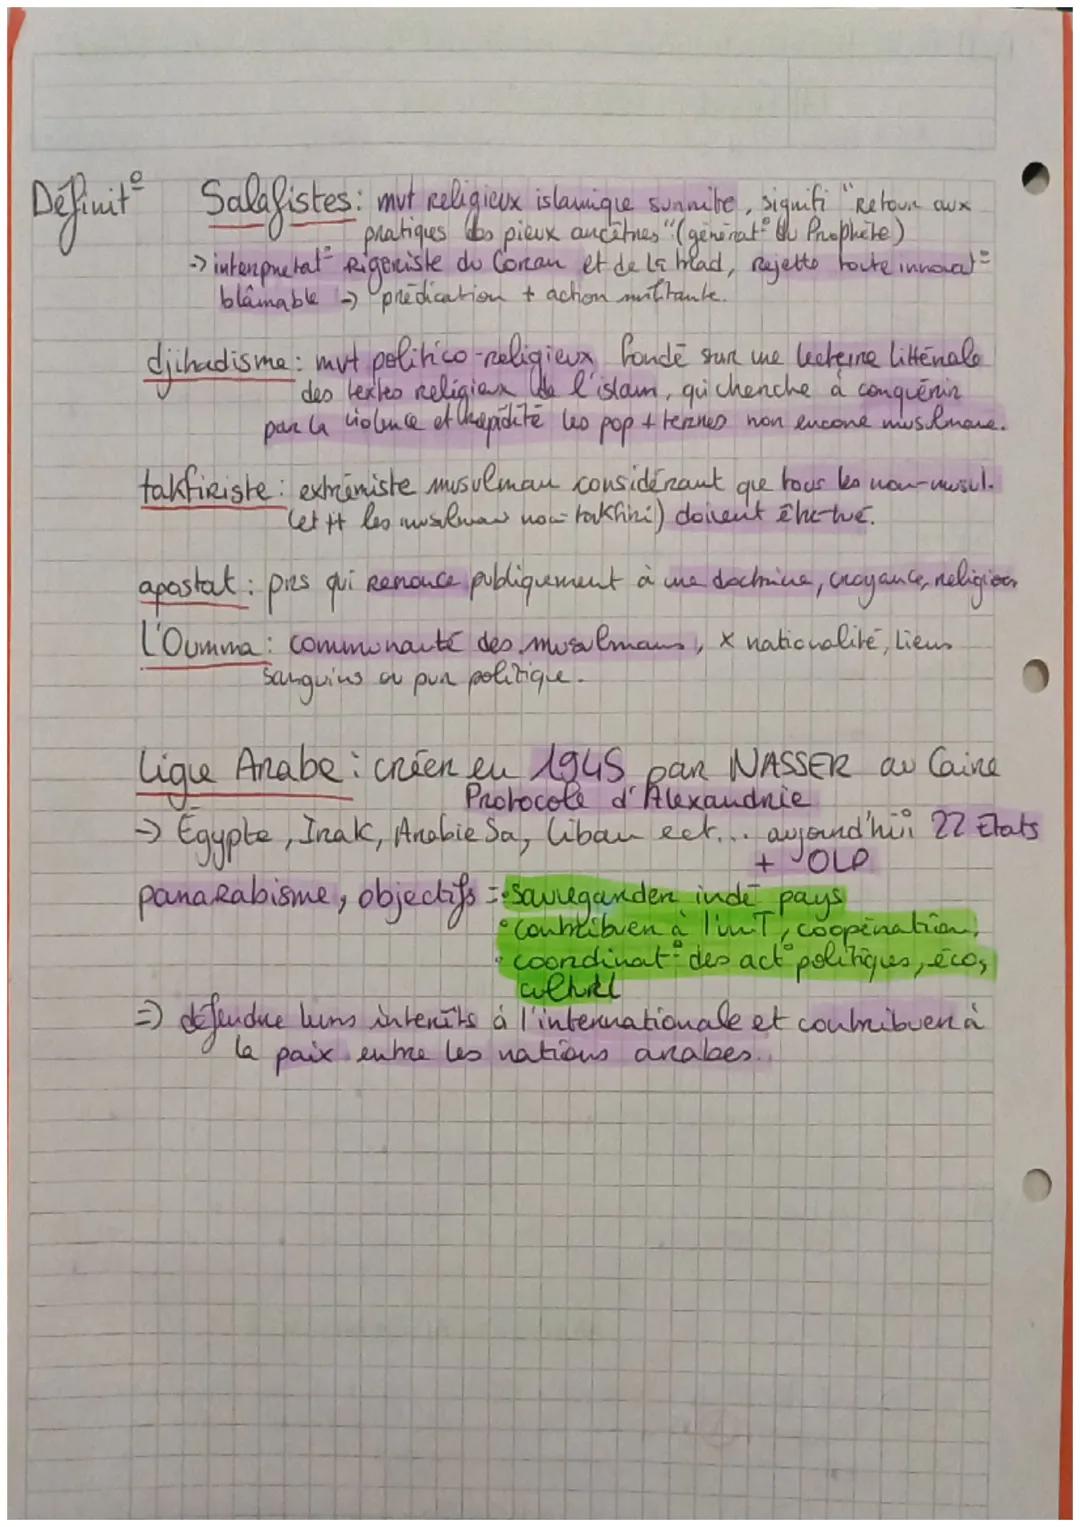 Définit° Salafistes : mvt religieux islamique sunnite, signifi "Retour aux
pratiques des pieux ancêtres" (générat° du Prophète)
-> interprétat° Rigoriste du Coran et de la trad, rejette toute innovat°
blâmable -> prédication + action militante.
djihadisme : mvt politico-religieux fondé sur une lecture littérale
des textes religieux de l'islam, qui cherche à conquérir
par la violence et rapidité les pop + terres non encore musulmane.
takfiriste : extrémiste musulman considérant que tous les non-musul.
(et tt les musulmans non-takfiri) doivent être tué.
apostat : prs qui Renonce publiquement à une doctrine, croyance, religion
L'Oumma : communauté des musulmans, x nationalité, liens
sanguins ou pvr politique.
Ligue Arabe : créer en 1945 par NASSER au Caire
Protocole d'Alexandrie
-> Égypte, Irak, Arabie Sa, Liban ect... aujourd'hui 22 États
+ OLP
panarabisme, objectifs = • sauvegarder indé pays
• contribuer à l'unT, coopération,
• coordinat° des act° politiques, éco,
culturel
=> défendre leurs intérêts à l'internationale et contribuer à
la paix entre les nations arabes.